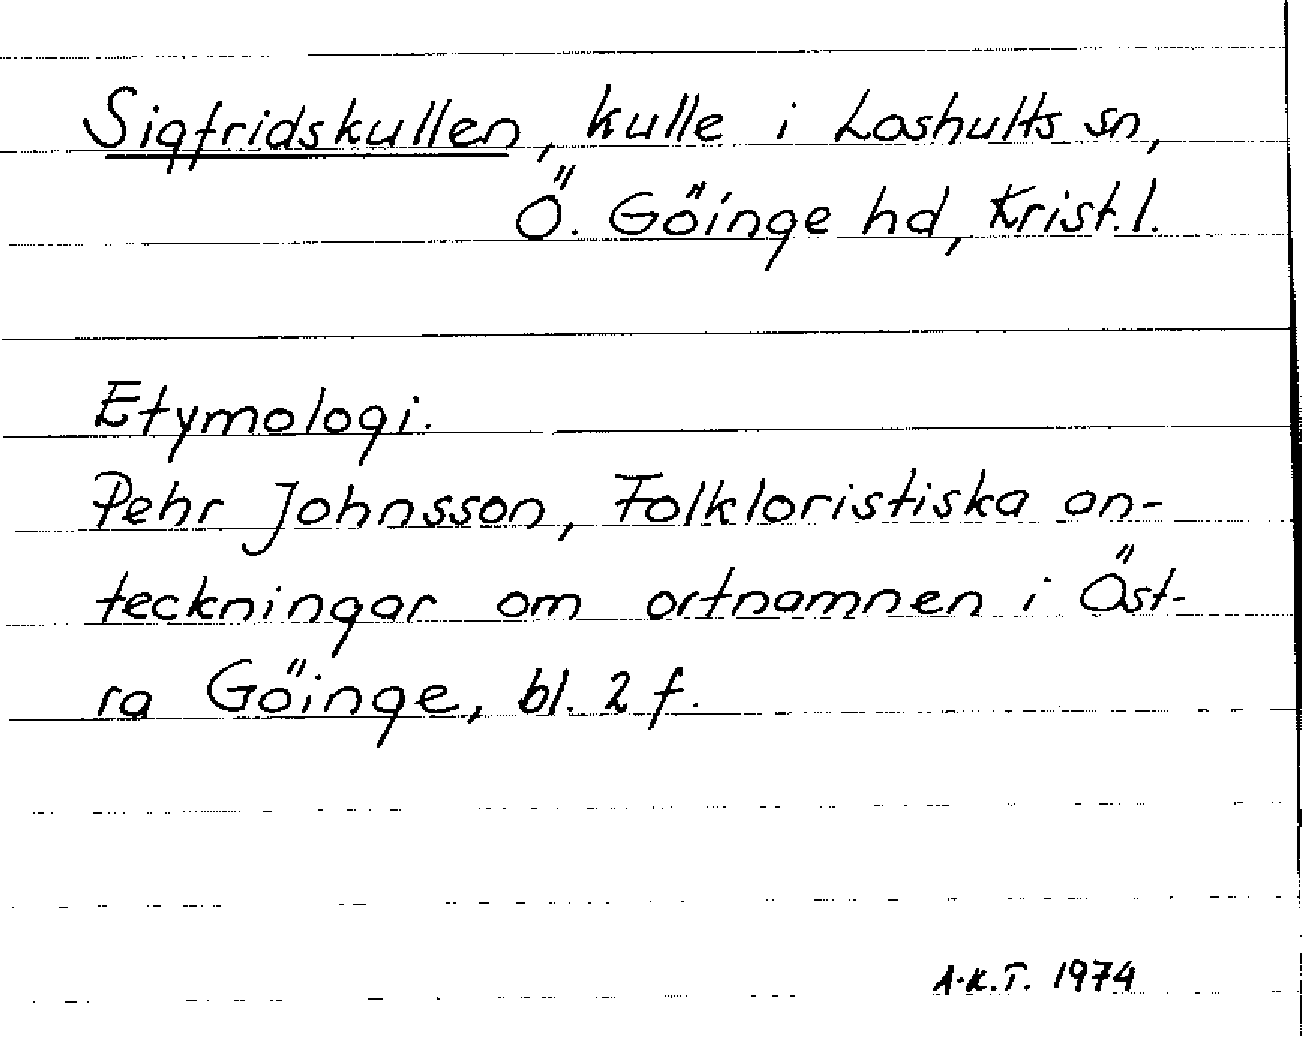 Sigfridskullen, kulle i Loshults sn,
Ö. Göinge hd, Krist. l.
Etymologi.
Pehr Johnsson, Folkloristiska an-
teckningar om ortnamnen i Öst-
ra Göinge, bl. 2 f.
A.K.T. 1974